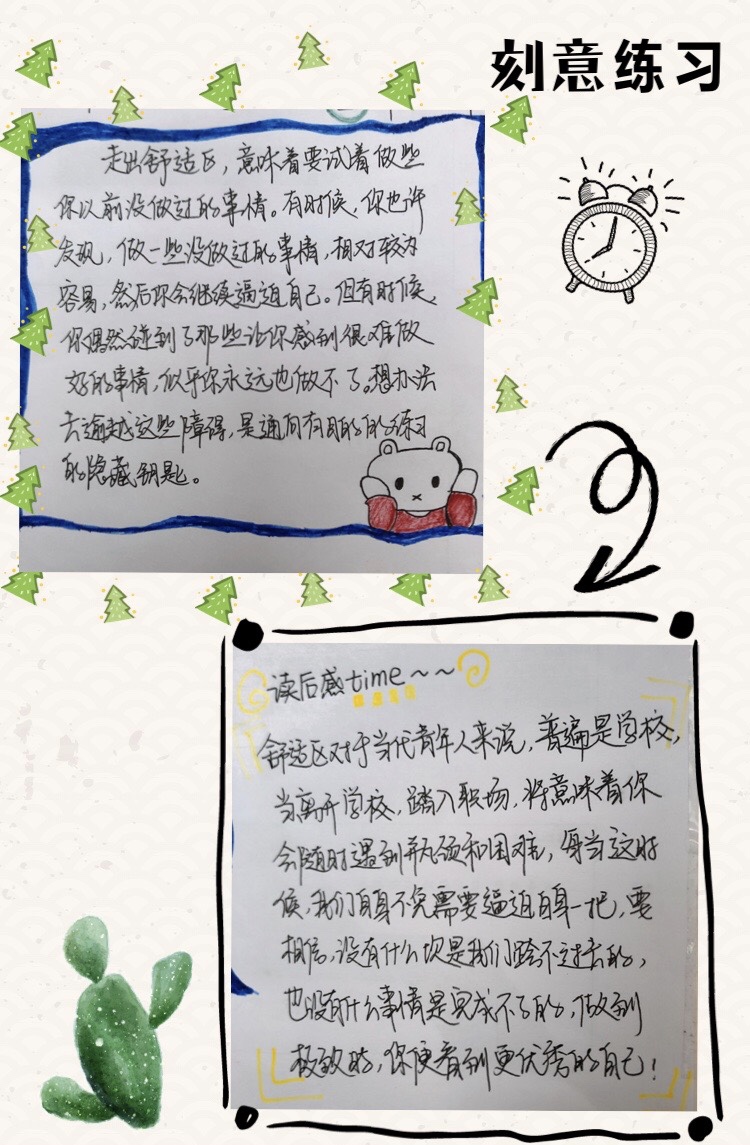 刻意练习
走出舒适区，意味着要试着做些
你以前没做过的事情。有时候，你也许
发现，做一些没做过的事情，相对较为
容易，然后你会继续逼迫自己。但有时候，
你偶然碰到了那些让你感到很难做
好的事情，似乎你永远也做不了。想办法
去逾越这些障碍，是通向有目的的练习
的隐藏钥匙。
读后感time～～
舒适区对于当代青年人来说，普遍是学校，
当离开学校，踏入职场，将意味着你
会随时遇到瓶颈和困难，每当这时
候，我们自身不免需要逼迫自身一把，要
相信，没有什么坎是我们跨不过去的，
也没有什么事情是完成不了的，做到
极致时，你便看到更优秀的自己！